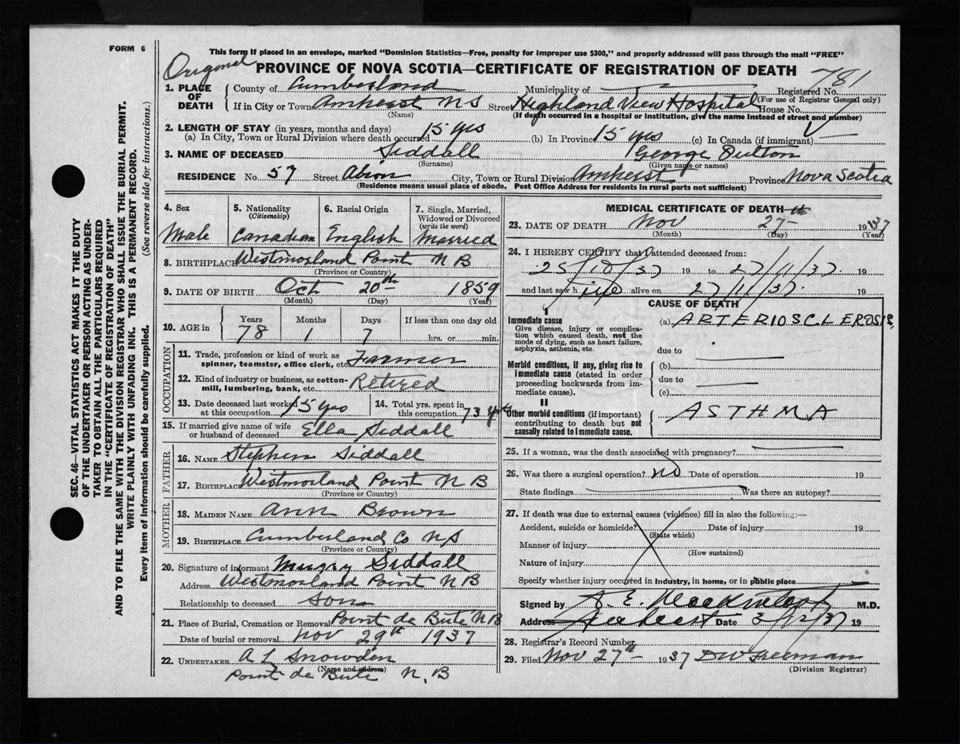 FORM 6
Original
This form if placed in an envelope, marked "Dominion Statistics—Free, penalty for improper use $300," and properly addressed will pass through the mail "FREE"
PROVINCE OF NOVA SCOTIA—CERTIFICATE OF REGISTRATION OF DEATH 781
1. PLACE OF DEATH County of Cumberland Municipality of Registered No. (For use of Registrar General only)
If in City or Town Amherst N S (Name) Street Highland View Hospital House No.
(If death occurred in a hospital or institution, give the name instead of street and number)
2. LENGTH OF STAY (in years, months and days)
(a) In City, Town or Rural Division where death occurred 15 yrs (b) In Province 15 yrs (c) In Canada (if immigrant)
3. NAME OF DECEASED Siddall (Surname) George (Given name or names)
RESIDENCE No. 57 Street City, Town or Rural Division Amherst Province Nova Scotia
(Residence means usual place of abode. Post Office Address for residents in rural parts not sufficient)
4. Sex Male
5. Nationality (Citizenship) Canadian
6. Racial Origin English
7. Single, Married, Widowed or Divorced (write the word) Married
8. BIRTHPLACE Westmorland Point N B
(Province or Country)
9. DATE OF BIRTH Oct 20th 1859
(Month) (Day) (Year)
10. AGE in Years Months Days If less than one day
78 1 7 hrs. or min.
OCCUPATION
11. Trade, profession or kind of work as spinner, teamster, office clerk, etc. Farmer
12. Kind of industry or business, as cotton-mill, lumbering, bank, etc. Retired
13. Date deceased last worked at this occupation 15 yrs 14. Total yrs. spent in this occupation 73 yrs
15. If married give name of wife or husband of deceased Ella Siddall
FATHER
16. NAME Stephen Siddall
17. BIRTHPLACE Westmorland Point N B
(Province or Country)
MOTHER
18. MAIDEN NAME Ann Brown
19. BIRTHPLACE Cumberland Co N S
(Province or Country)
20. Signature of informant Siddall
Address Westmorland Point N B
Relationship to deceased Son
21. Place of Burial, Cremation or Removal Point de Bute N B
Date of burial or removal Nov 29th 1937
22. UNDERTAKER A L Snowden
(Name and address)
Point de Bute N. B
MEDICAL CERTIFICATE OF DEATH
23. DATE OF DEATH Nov 27th 1937
(Month) (Day) (Year)
24. I HEREBY CERTIFY that I attended deceased from:
25/10/37 19 to 27/11/37. 19
and last saw h alive on 27/11/37. 19
CAUSE OF DEATH
I
Immediate cause
Give disease, injury or complication which caused death, not the mode of dying, such as heart failure, asphyxia, asthenia, etc.
(a) ARTERIOSCLEROSIS
due to
Morbid conditions, if any, giving rise to immediate cause (stated in order proceeding backwards from immediate cause).
(b)
due to
(c)
II
Other morbid conditions (if important) contributing to death but not causally related to immediate cause.
ASTHMA
25. If a woman, was the death associated with pregnancy?
26. Was there a surgical operation? No Date of operation 19
State findings Was there an autopsy?
27. If death was due to external causes (violence) fill in also the following:—
Accident, suicide or homicide? Date of injury 19
(State which)
Manner of injury
(How sustained)
Nature of injury
Specify whether injury occurred in industry, in home, or in public place
Signed by M.D.
Address Amherst Date 3/12/37 19
28. Registrar's Record Number
29. Filed Nov 27th 1937 D W Freeman
(Division Registrar)
SEC. 46—VITAL STATISTICS ACT MAKES IT THE DUTY
OF THE UNDERTAKER OR PERSON ACTING AS UNDER-
TAKER TO OBTAIN ALL THE PARTICULARS REQUIRED
IN THE "CERTIFICATE OF REGISTRATION OF DEATH"
AND TO FILE THE SAME WITH THE DIVISION REGISTRAR WHO SHALL ISSUE THE BURIAL PERMIT.
WRITE PLAINLY WITH UNFADING INK. THIS IS A PERMANENT RECORD.
Every item of information should be carefully supplied. (See reverse side for instructions.)